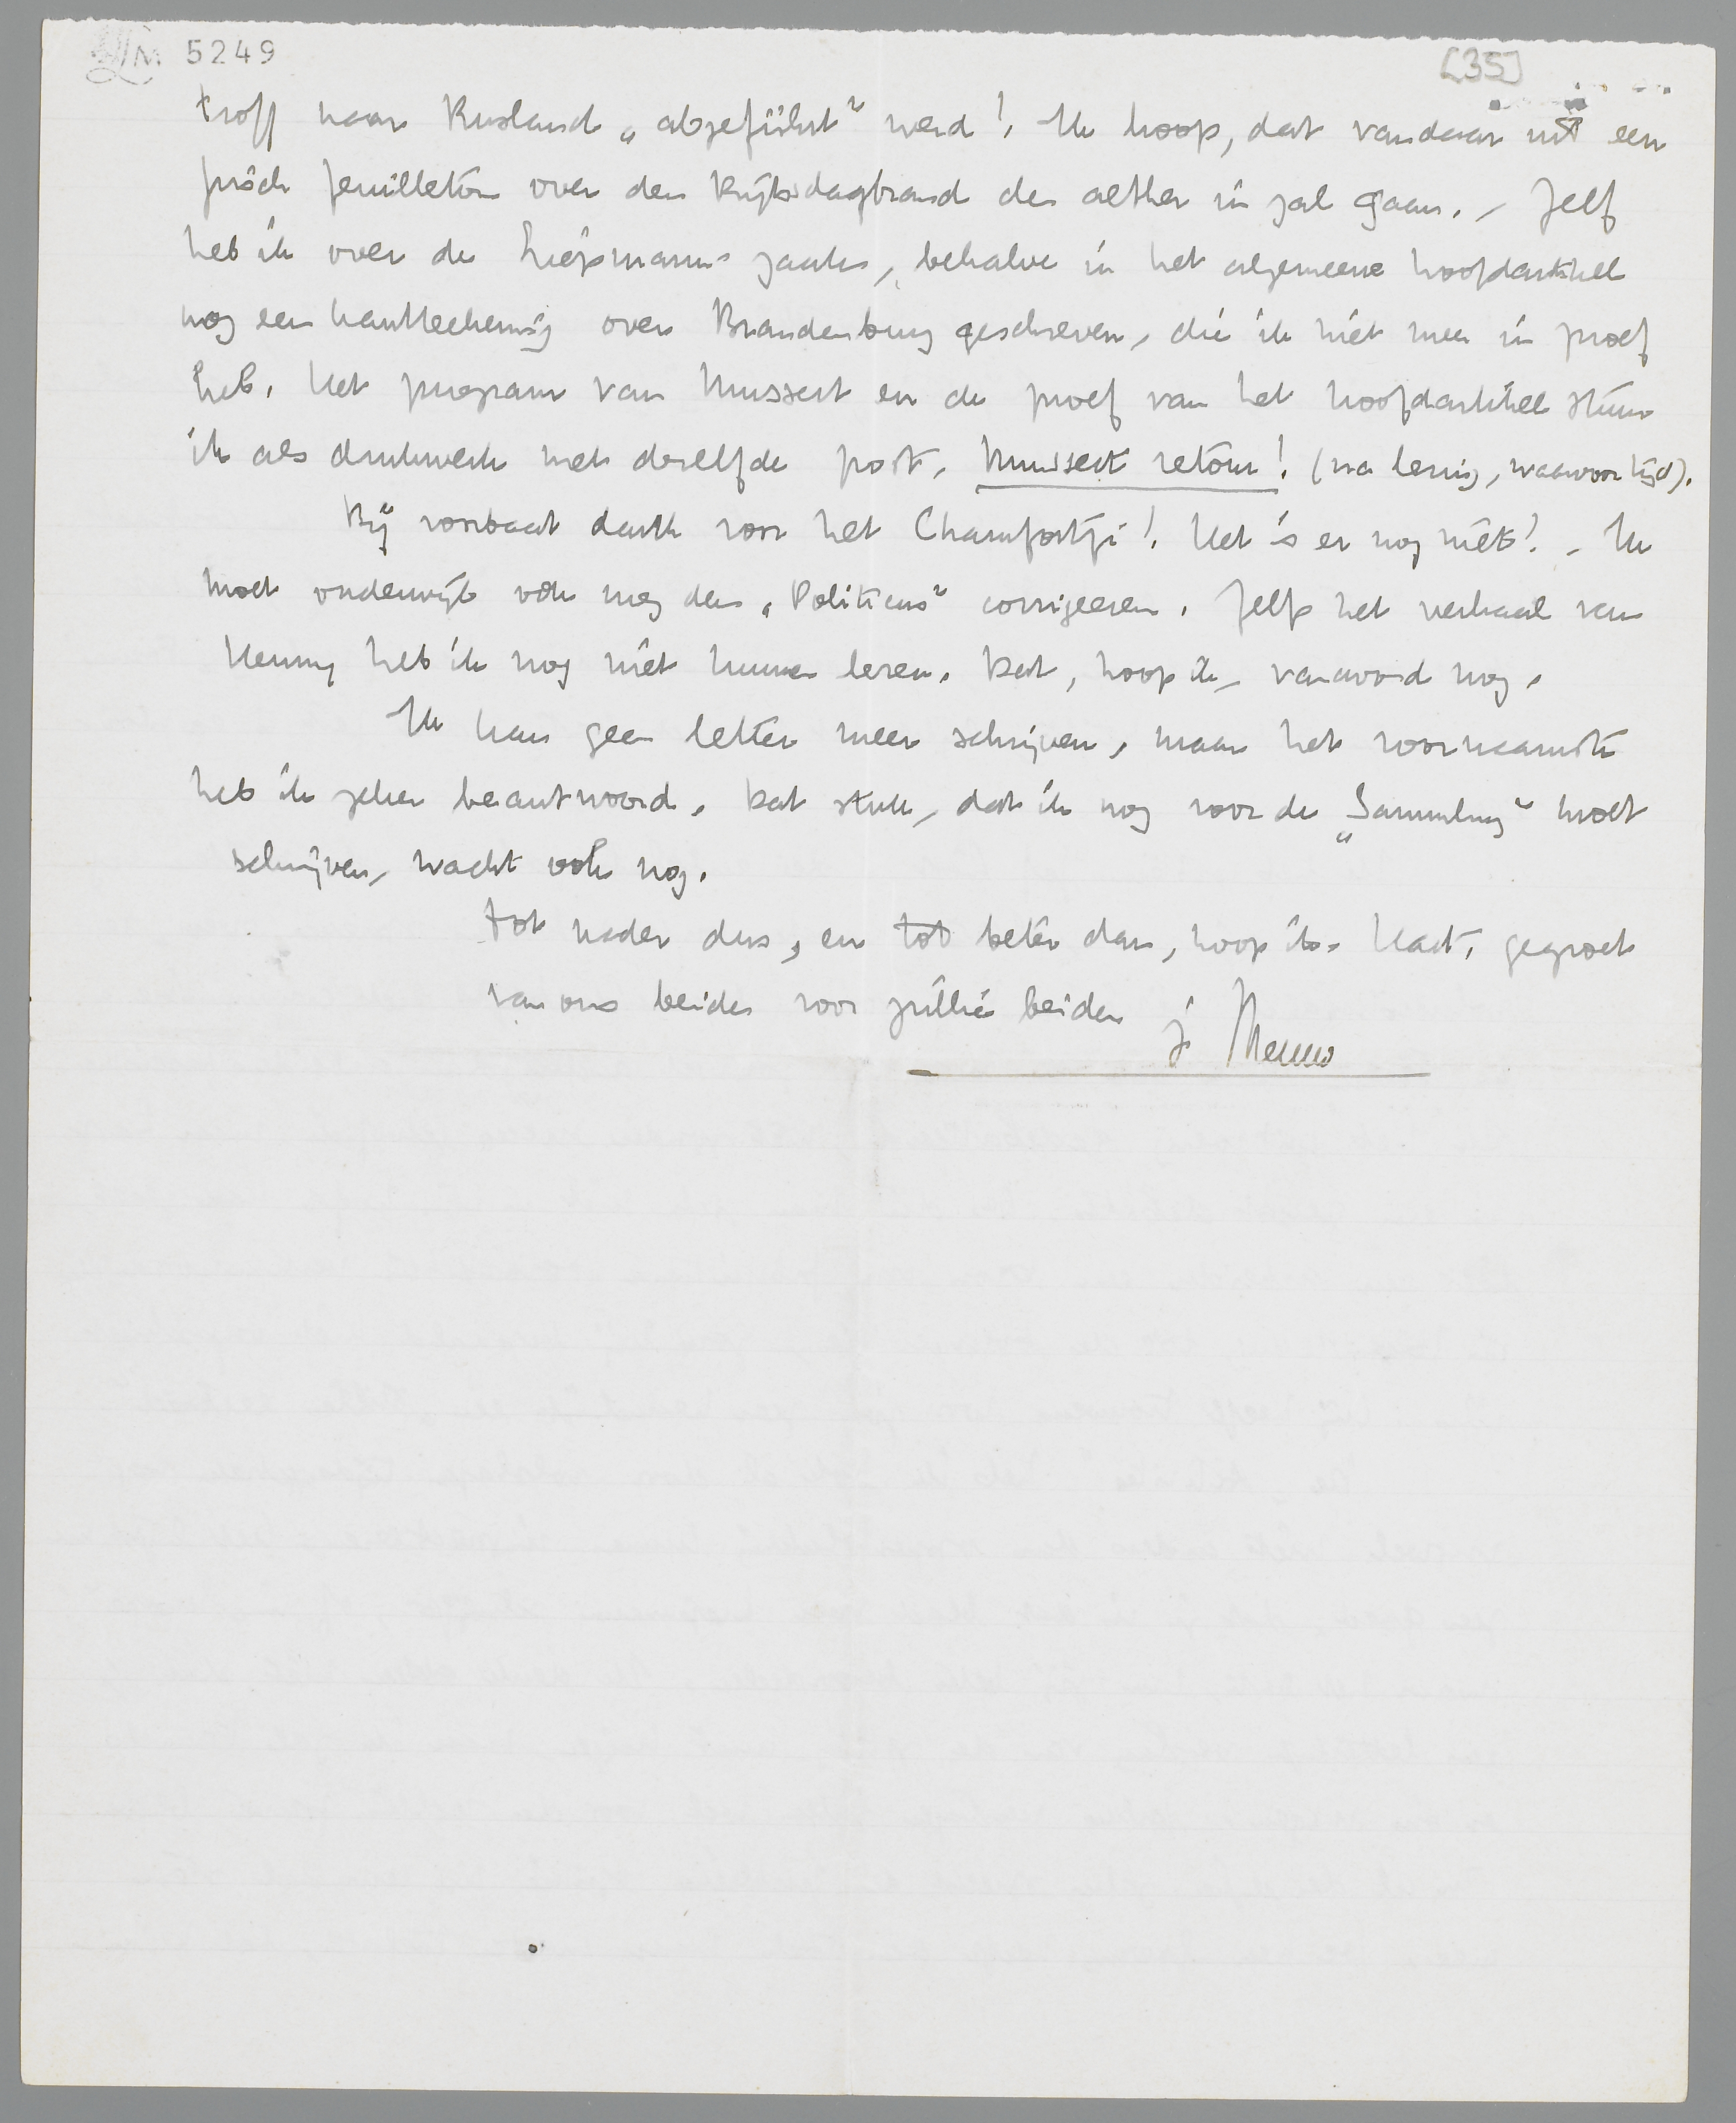 LM 5249
[35]
troff naar Rusland „abgeführt” werd! Ik hoop, dat vandaar uit een
frisch feuilleton over den Rijksdagbrand den aether in zal gaan. – Zelf
heb ik over de Liepmann-zaak, behalve in het algemeene hoofdartikel
nog een kantteekening over Brandenburg geschreven, die ik niet meer in proef
heb. Het program van Mussert en de proef van het hoofdartikel stuur
ik als drukwerk met dezelfde post. Mussert retour! (na lezing, waarvoor tijd).
Bij voorbaat dank voor het Chamfortje! Het is er nog niet! – Ik
moet onderwijl ook nog den „Politicus” corrigeeren. Zelfs het verhaal van
Henny heb ik nog niet kunnen lezen. Dat, hoop ik, vanavond nog.
Ik kan geen letter meer schrijven, maar het voornaamste
heb ik zeker beantwoord. Dat stuk, dat ik nog voor de „Sammlung” moet
schrijven, wacht ook nog.
Tot nader dus, en tot beter dan, hoop ik. Hart. gegroet
van ons beiden voor jullie beiden je Menno